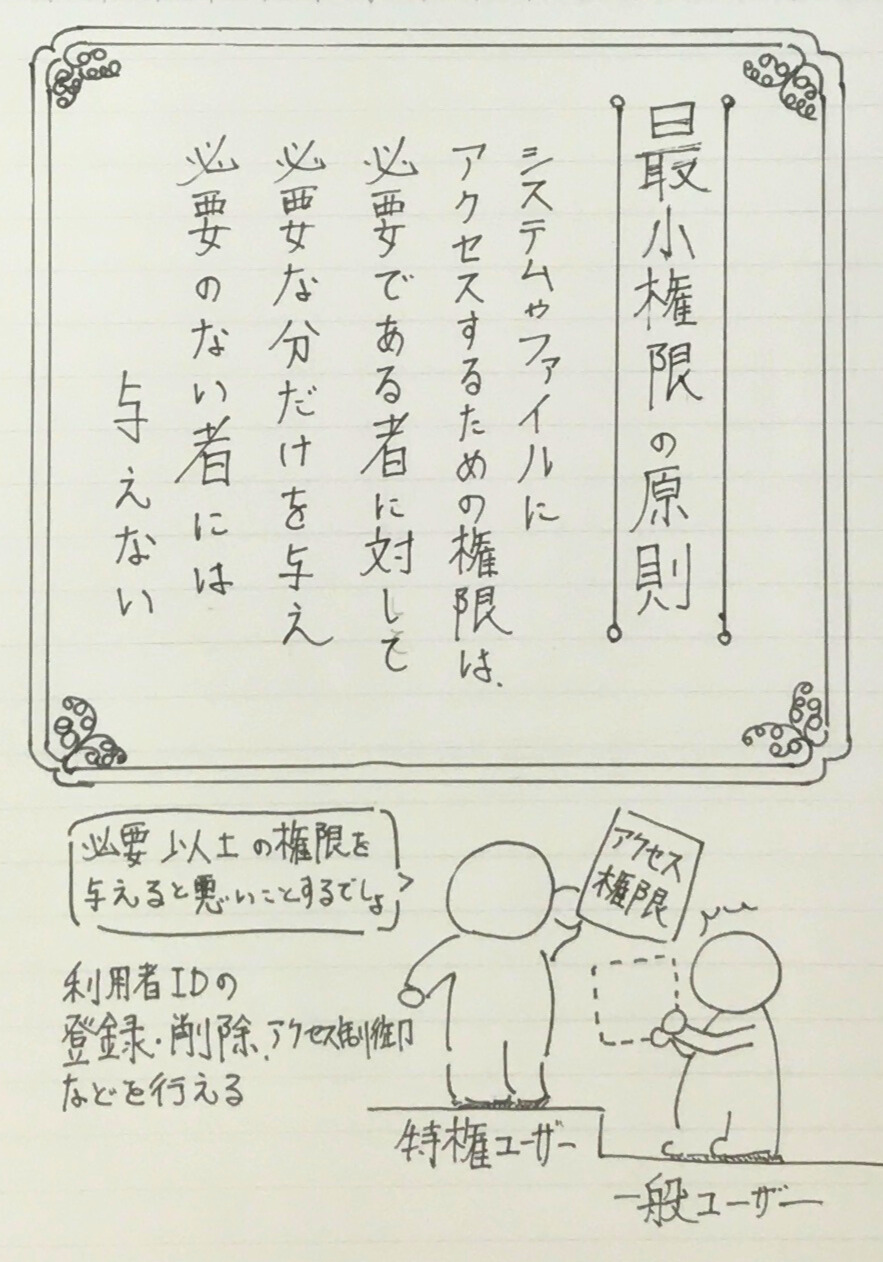 最小権限の原則
システムやファイルに
アクセスするための権限は、
必要である者に対して
必要な分だけを与え
必要のない者には
与えない
必要以上の権限を
与えると悪いことするでしょ
アクセス
権限
利用者IDの
登録・削除、アクセス制御
などを行える
特権ユーザー
一般ユーザー